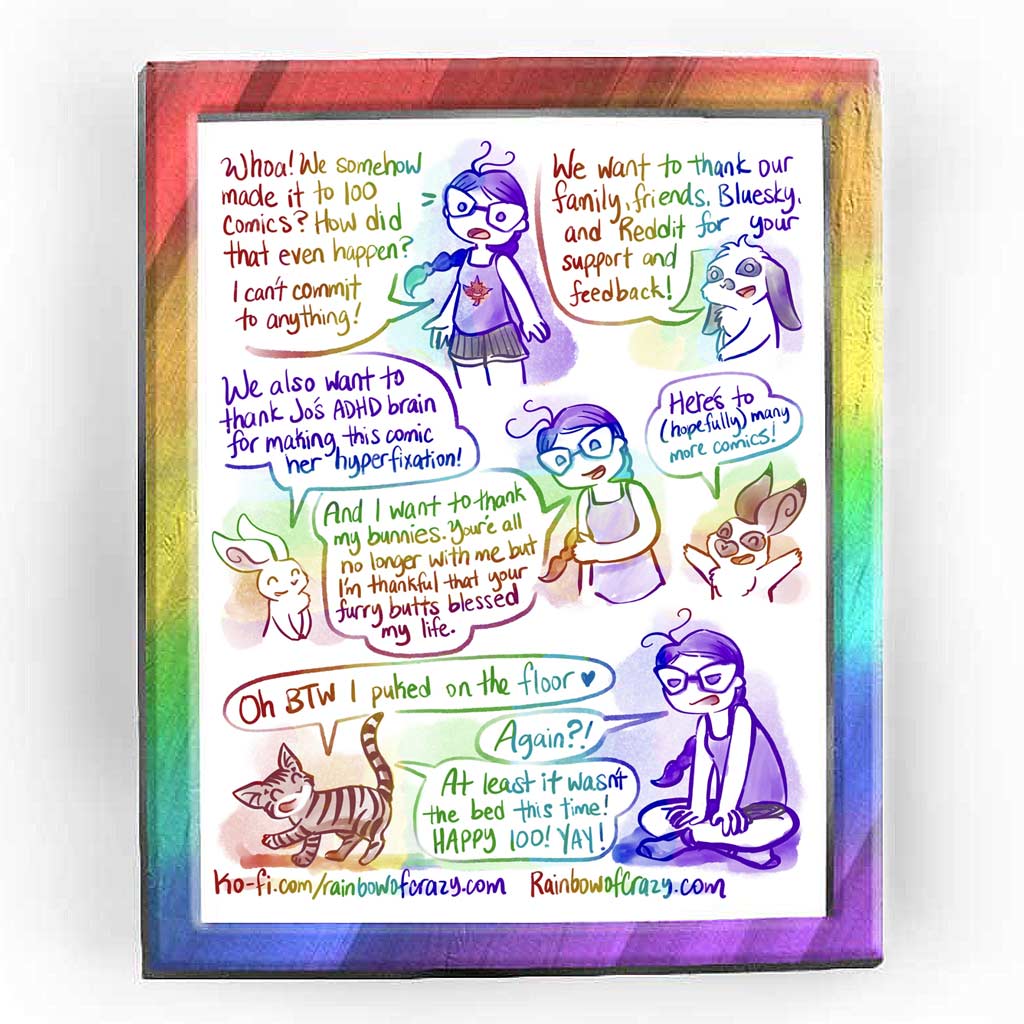 Whoa! We somehow
made it to 100
comics? How did
that even happen?
I can't commit
to anything!
We want to thank our
family, friends, Bluesky,
and Reddit for your
support and
feedback!
We also want to
thank Jo's ADHD brain
for making this comic
her hyperfixation!
And I want to thank
my bunnies. You're all
no longer with me but
I'm thankful that your
furry butts blessed
my life.
Here's to
(hopefully) many
more comics!
Oh BTW I puked on the floor ♥
Again?!
At least it wasn't
the bed this time!
HAPPY 100! YAY!
Ko-fi.com/rainbowofcrazy.com
RainbowofCrazy.com